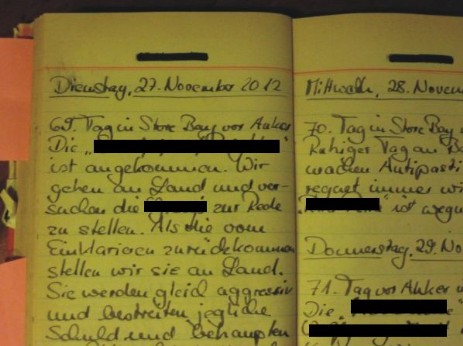 Dienstag, 27. November 2012
69. Tag in Store Bay vor Anker
Die "
ist angekommen. Wir
gehen an Land und ver-
suchen die zur Rede
zu stellen. Als die vom
Einklarieren zurückkommen
stellen wir sie an Land.
Sie werden gleich aggressiv
und bestreiten jegliche
Schuld und behaupten
Mittwoch, 28. Novem
70. Tag in Store Bay v
Ruhiger Tag an B
machen Antipasti
regnet immer wi
" ist wegen
Donnerstag, 29. No
71. Tag vor Anker
Die "